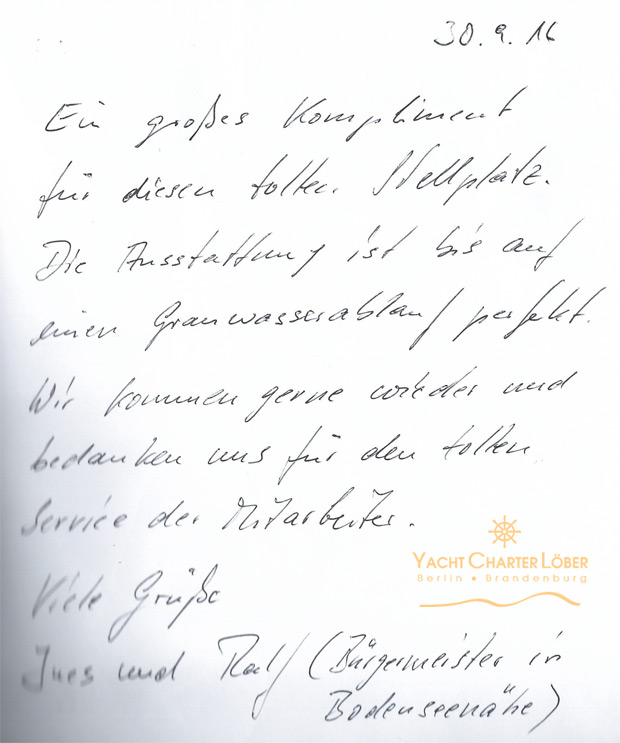 30.9.16
Ein großes Kompliment
für diesen tollen Stellplatz.
Die Ausstattung ist bis auf
einen Grauwasserablauf perfekt.
Wir kommen gerne wieder und
bedanken uns für den tollen
Service der Mitarbeiter.
YACHT CHARTER LÖBER
Berlin • Brandenburg
Viele Grüße
Ines und Ralf (Bürgermeister in
Bodenseenähe)